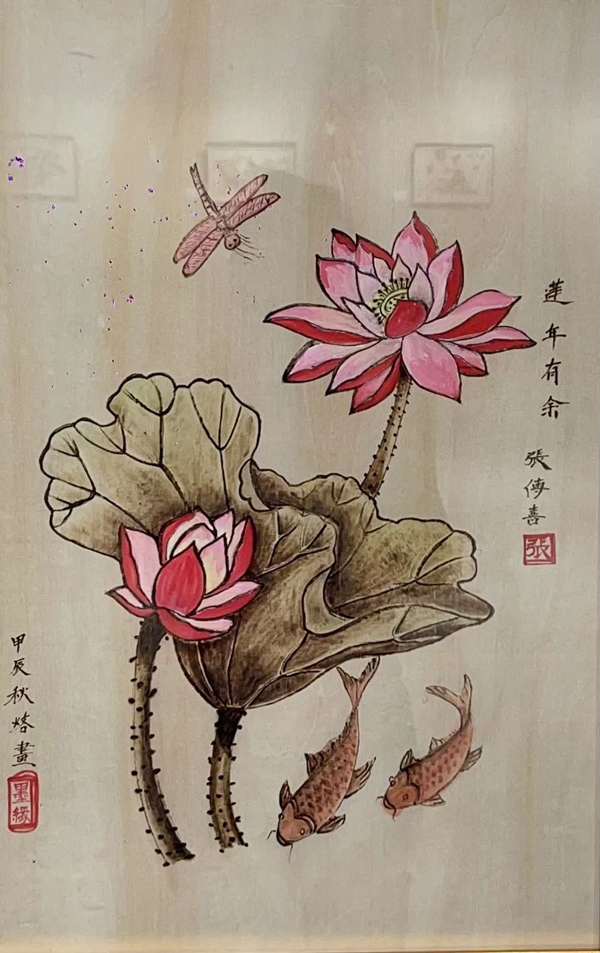 莲年有余
張傳喜
張
甲辰秋烙畫
墨緣